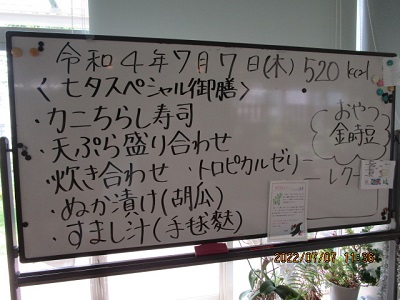 令和4年7月7日(木) 520 kcal
<七夕スペシャル御膳>
・カニちらし寿司
・天ぷら盛り合わせ
・炊き合わせ ・トロピカルゼリー
・ぬか漬け(胡瓜)
・すまし汁(手毬麩)
おやつ
金時豆
レク
2022/07/07